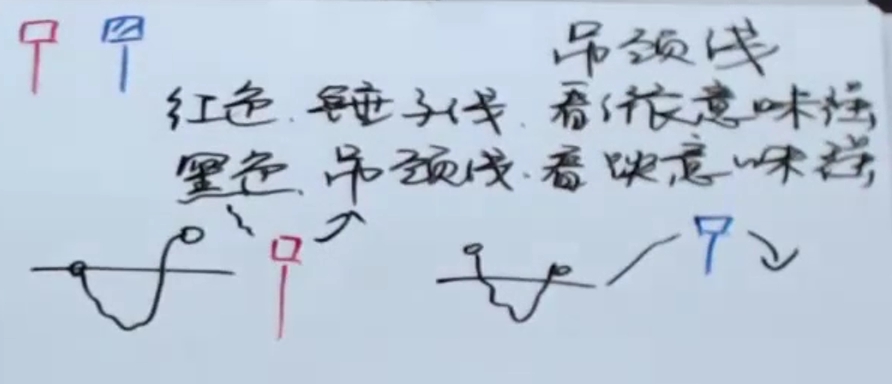 吊颈线
红色.锤子线.看涨意味强
黑色.吊颈线.看跌意味强